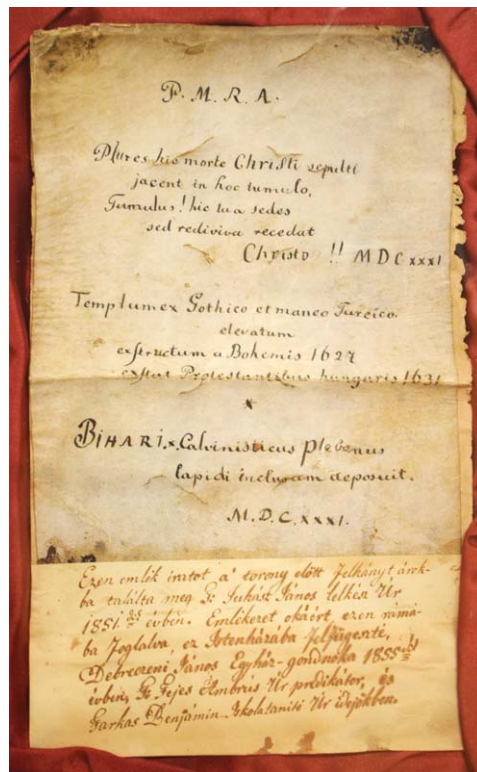 P. M. R. A.
Plures hic morte Christi sepulti
jacent in hoc tumulo,
Tumulus! hic tua sedes
sed rediviva recedat
Christo !! MDCXXXI
Templum ex Gothico et maneo Turcico
elevatum
exstructum a Bohemis 1627
exstat Protestantibus hungaris 1631
x
BIHARI x. Calvinisticus plebenus
lapidi inclusam deposuit.
M.D.C.XXXI.
Ezen emlék iratot a' torony előtt felhányt árok-
ba találta meg Lukász János lelkész Úr
1851 évben. Emlékezet okáért, ezen rámá-
ba foglalva, ez Istenházába felfügeszté,
Debreczeni János Egyház-gondnoka 1855
évben, Fejes Ambrus Úr predikátor, és
Farkas Benjamin Iskolatanitó Úr idejökben.